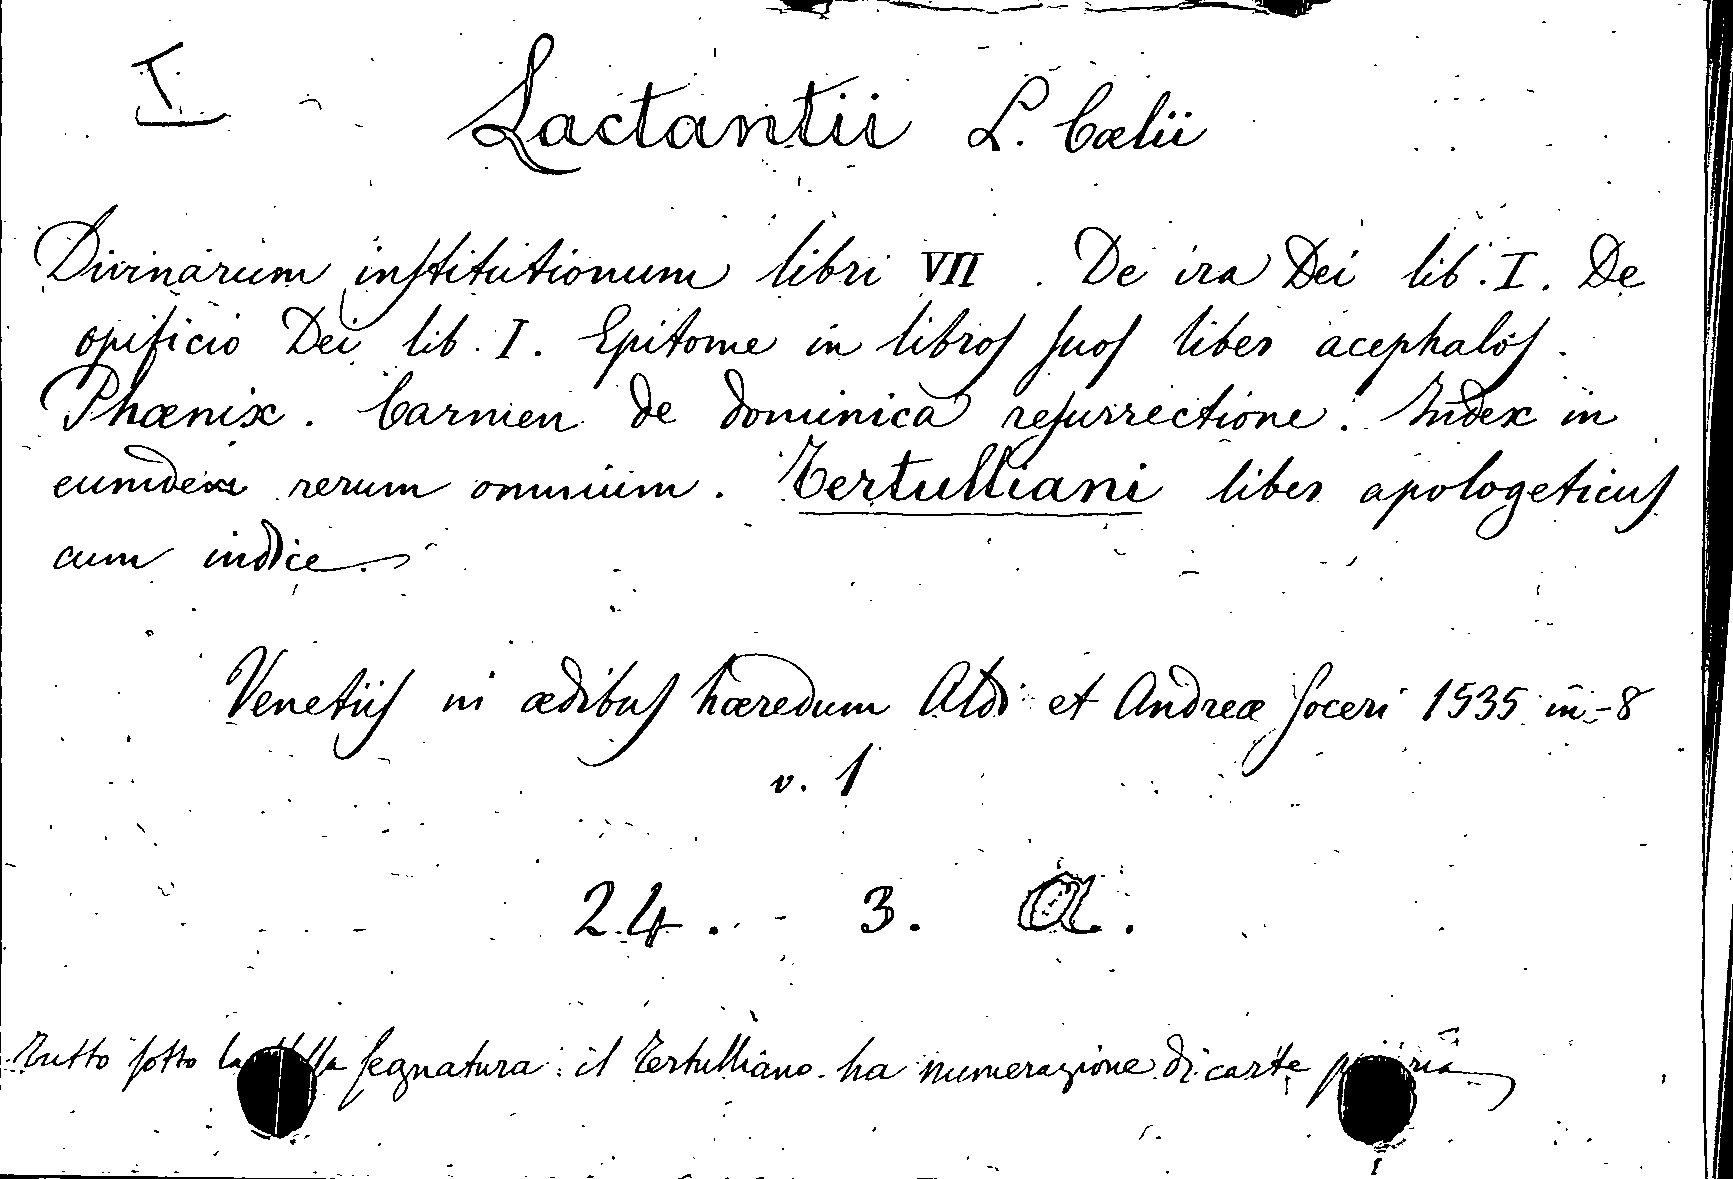 I
Lactantii L. Cælii
Divinarum institutionum libri VII. De ira Dei lib. I. De
opificio Dei lib. I. Epitome in libros suos liber acephalos.
Phœnix. Carmen de dominica resurrectione. Index in
eumdem rerum omnium. Tertulliani liber apologeticus
cum indice.
Venetiis in ædibus hæredum Aldi et Andreæ soceri 1535 in-8
v. 1
24. - 3. A.
Tutto sotto la segnatura: il Tertulliano ha numerazione di carte